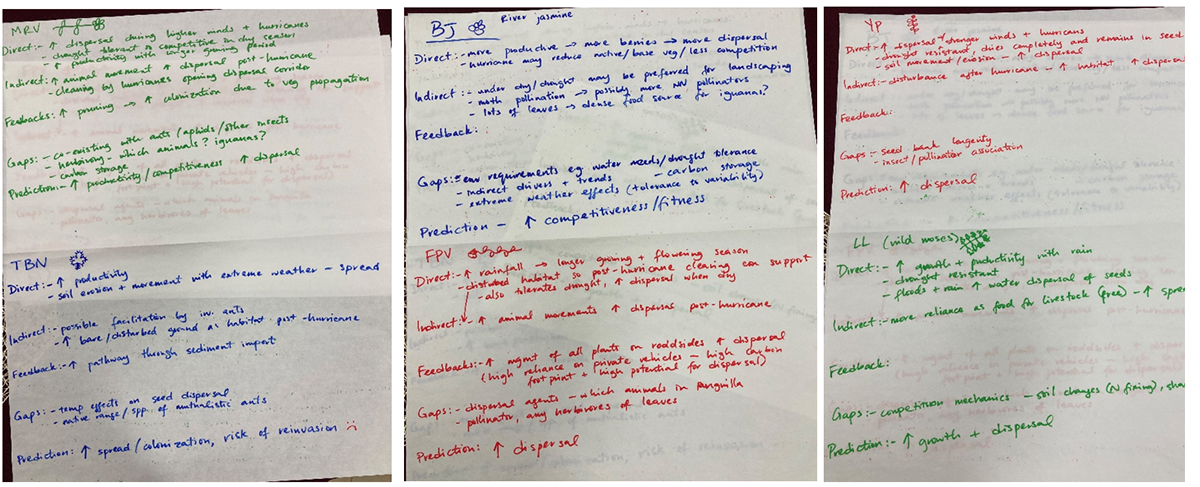 MRV
Direct:- ↑ dispersal during higher winds + hurricanes
- drought tolerant so competitive in dry season
- ↑ productivity with longer growing period
Indirect:- ↑ animal movement ↑ dispersal post-hurricane
- clearing by hurricanes opening dispersal corridor
Feedbacks:- ↑ pruning → ↑ colonization due to veg propagation
Gaps:- co-existing with ants/aphids/other insects
- herbivory - which animals? iguanas?
- carbon storage
Prediction:- ↑ productivity/competitiveness ↑ dispersal
TBN
Direct:- ↑ productivity
- soil erosion + movement with extreme weather - spread
Indirect:- possible facilitation by inv. ants
- ↑ bare/disturbed ground as habitat post-hurricane
Feedback:- ↑ pathway through sediment import
Gaps:- temp effects on seed dispersal
- native range/spp. of mutualistic ants
Prediction: ↑ spread/colonization, risk of reinvasion
BJ River jasmine
Direct:- more productive → more berries → more dispersal
- hurricane may reduce native/base veg/less competition
Indirect:- under dry/drought may be preferred for landscaping
- moth pollination → possibly more pollinators
- lots of leaves → dense food source for iguanas?
Feedback:
Gaps:- env requirements eg water needs/drought tolerance
- indirect drivers + trends - carbon storage
- extreme weather effects (+tolerance to variability)
Prediction - ↑ competitiveness/fitness
FPV
Direct:- ↑ rainfall → longer growing + flowering season
- disturbed habitat so post-hurricane clearing can support
- also tolerates drought, ↑ dispersal when dry
Indirect:- ↑ animal movements ↑ dispersal post-hurricane
Feedbacks:- ↑ mgmt of all plants on roadsides ↑ dispersal
(high reliance on private vehicles - high carbon
footprint + high potential for dispersal)
Gaps:- dispersal agents - which animals in Anguilla
- pollinator, any herbivores of leaves
Prediction: ↑ dispersal
YP
Direct:- ↑ dispersal stronger winds + hurricanes
- drought resistant, dies completely and remains in seed
- soil movement/erosion - ↑ dispersal
Indirect:- disturbance after hurricane - ↑ habitat ↑ dispersa
Feedback:
Gaps:- seed bank longevity
- insect/pollinator association
Prediction: ↑ dispersal
LL (wild moses)
Direct:- ↑ growth + productivity with rain
- drought resistant
- floods + rain ↑ water dispersal of seeds
Indirect:- more reliance as food for livestock (free) - ↑ spre
Feedback:
Gaps:- competition mechanics - soil changes (N fixing), sha
Prediction:- ↑ growth + dispersal